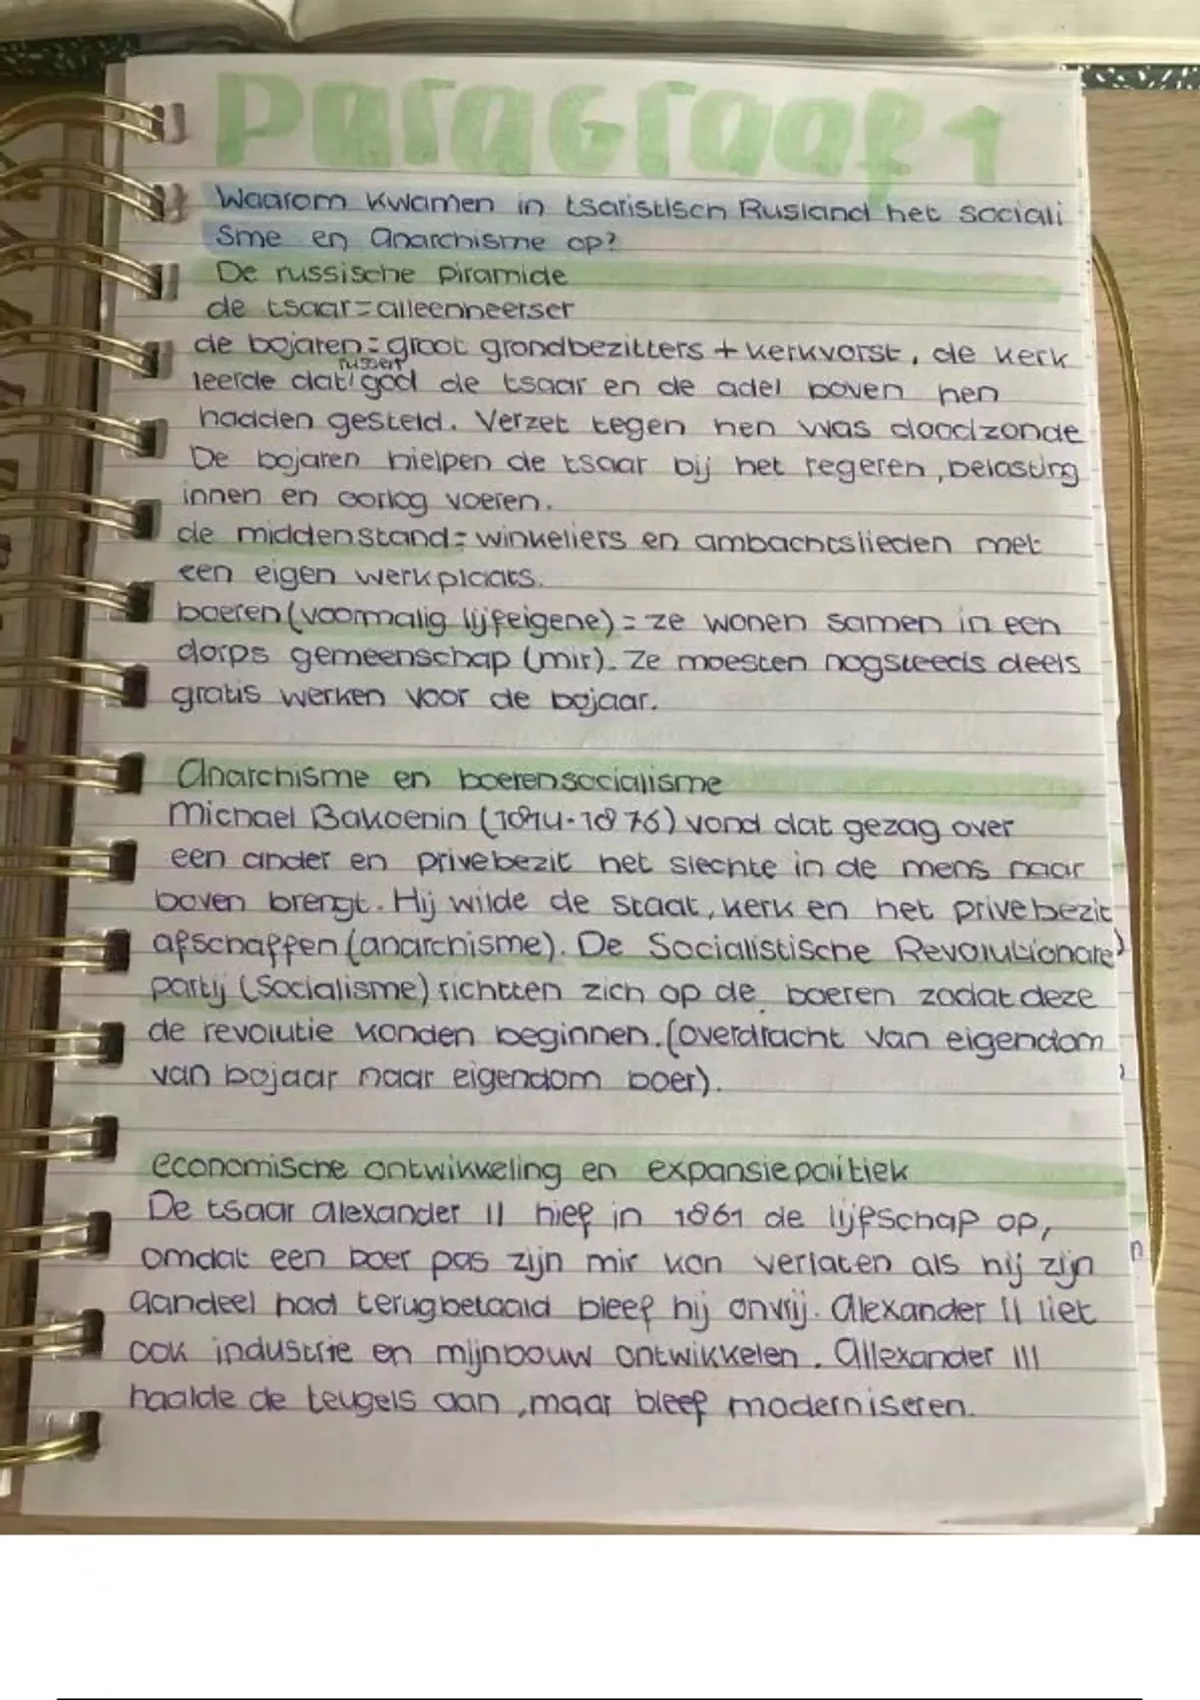 Paragraaf 1
Waarom kwamen in tsaristisch Rusland het sociali
sme en anarchisme op?
De russische piramide
de tsaar=alleenheerser
de bojaren= groot grondbezitters + kerkvorst, de kerk
leerde dat russen god de tsaar en de adel boven hen
hadden gesteld. Verzet tegen hen was doodzonde
De bojaren hielpen de tsaar bij het regeren, belasting
innen en oorlog voeren.
de middenstand= winkeliers en ambachtslieden met
een eigen werkplaats.
boeren (voormalig lijfeigene) = ze wonen samen in een
dorps gemeenschap (mir). Ze moesten nogsteeds deels
gratis werken voor de bojaar.
Anarchisme en boerensocialisme
Michael Bakoenin (1814-1876) vond dat gezag over
een ander en privebezit het slechte in de mens naar
boven brengt. Hij wilde de staat, kerk en het privebezit
afschaffen (anarchisme). De Socialistische Revolutionare
partij (Socialisme) richtten zich op de boeren zodat deze
de revolutie konden beginnen. (overdracht van eigendom
van bojaar naar eigendom boer).
economische ontwikkeling en expansiepolitiek
De tsaar alexander II hief in 1861 de lijfschap op,
omdat een boer pas zijn mir kon verlaten als hij zijn
aandeel had terugbetaald bleef hij onvrij. Alexander II liet
ook industrie en mijnbouw ontwikkelen. Allexander III
haalde de teugels aan, maar bleef moderniseren.